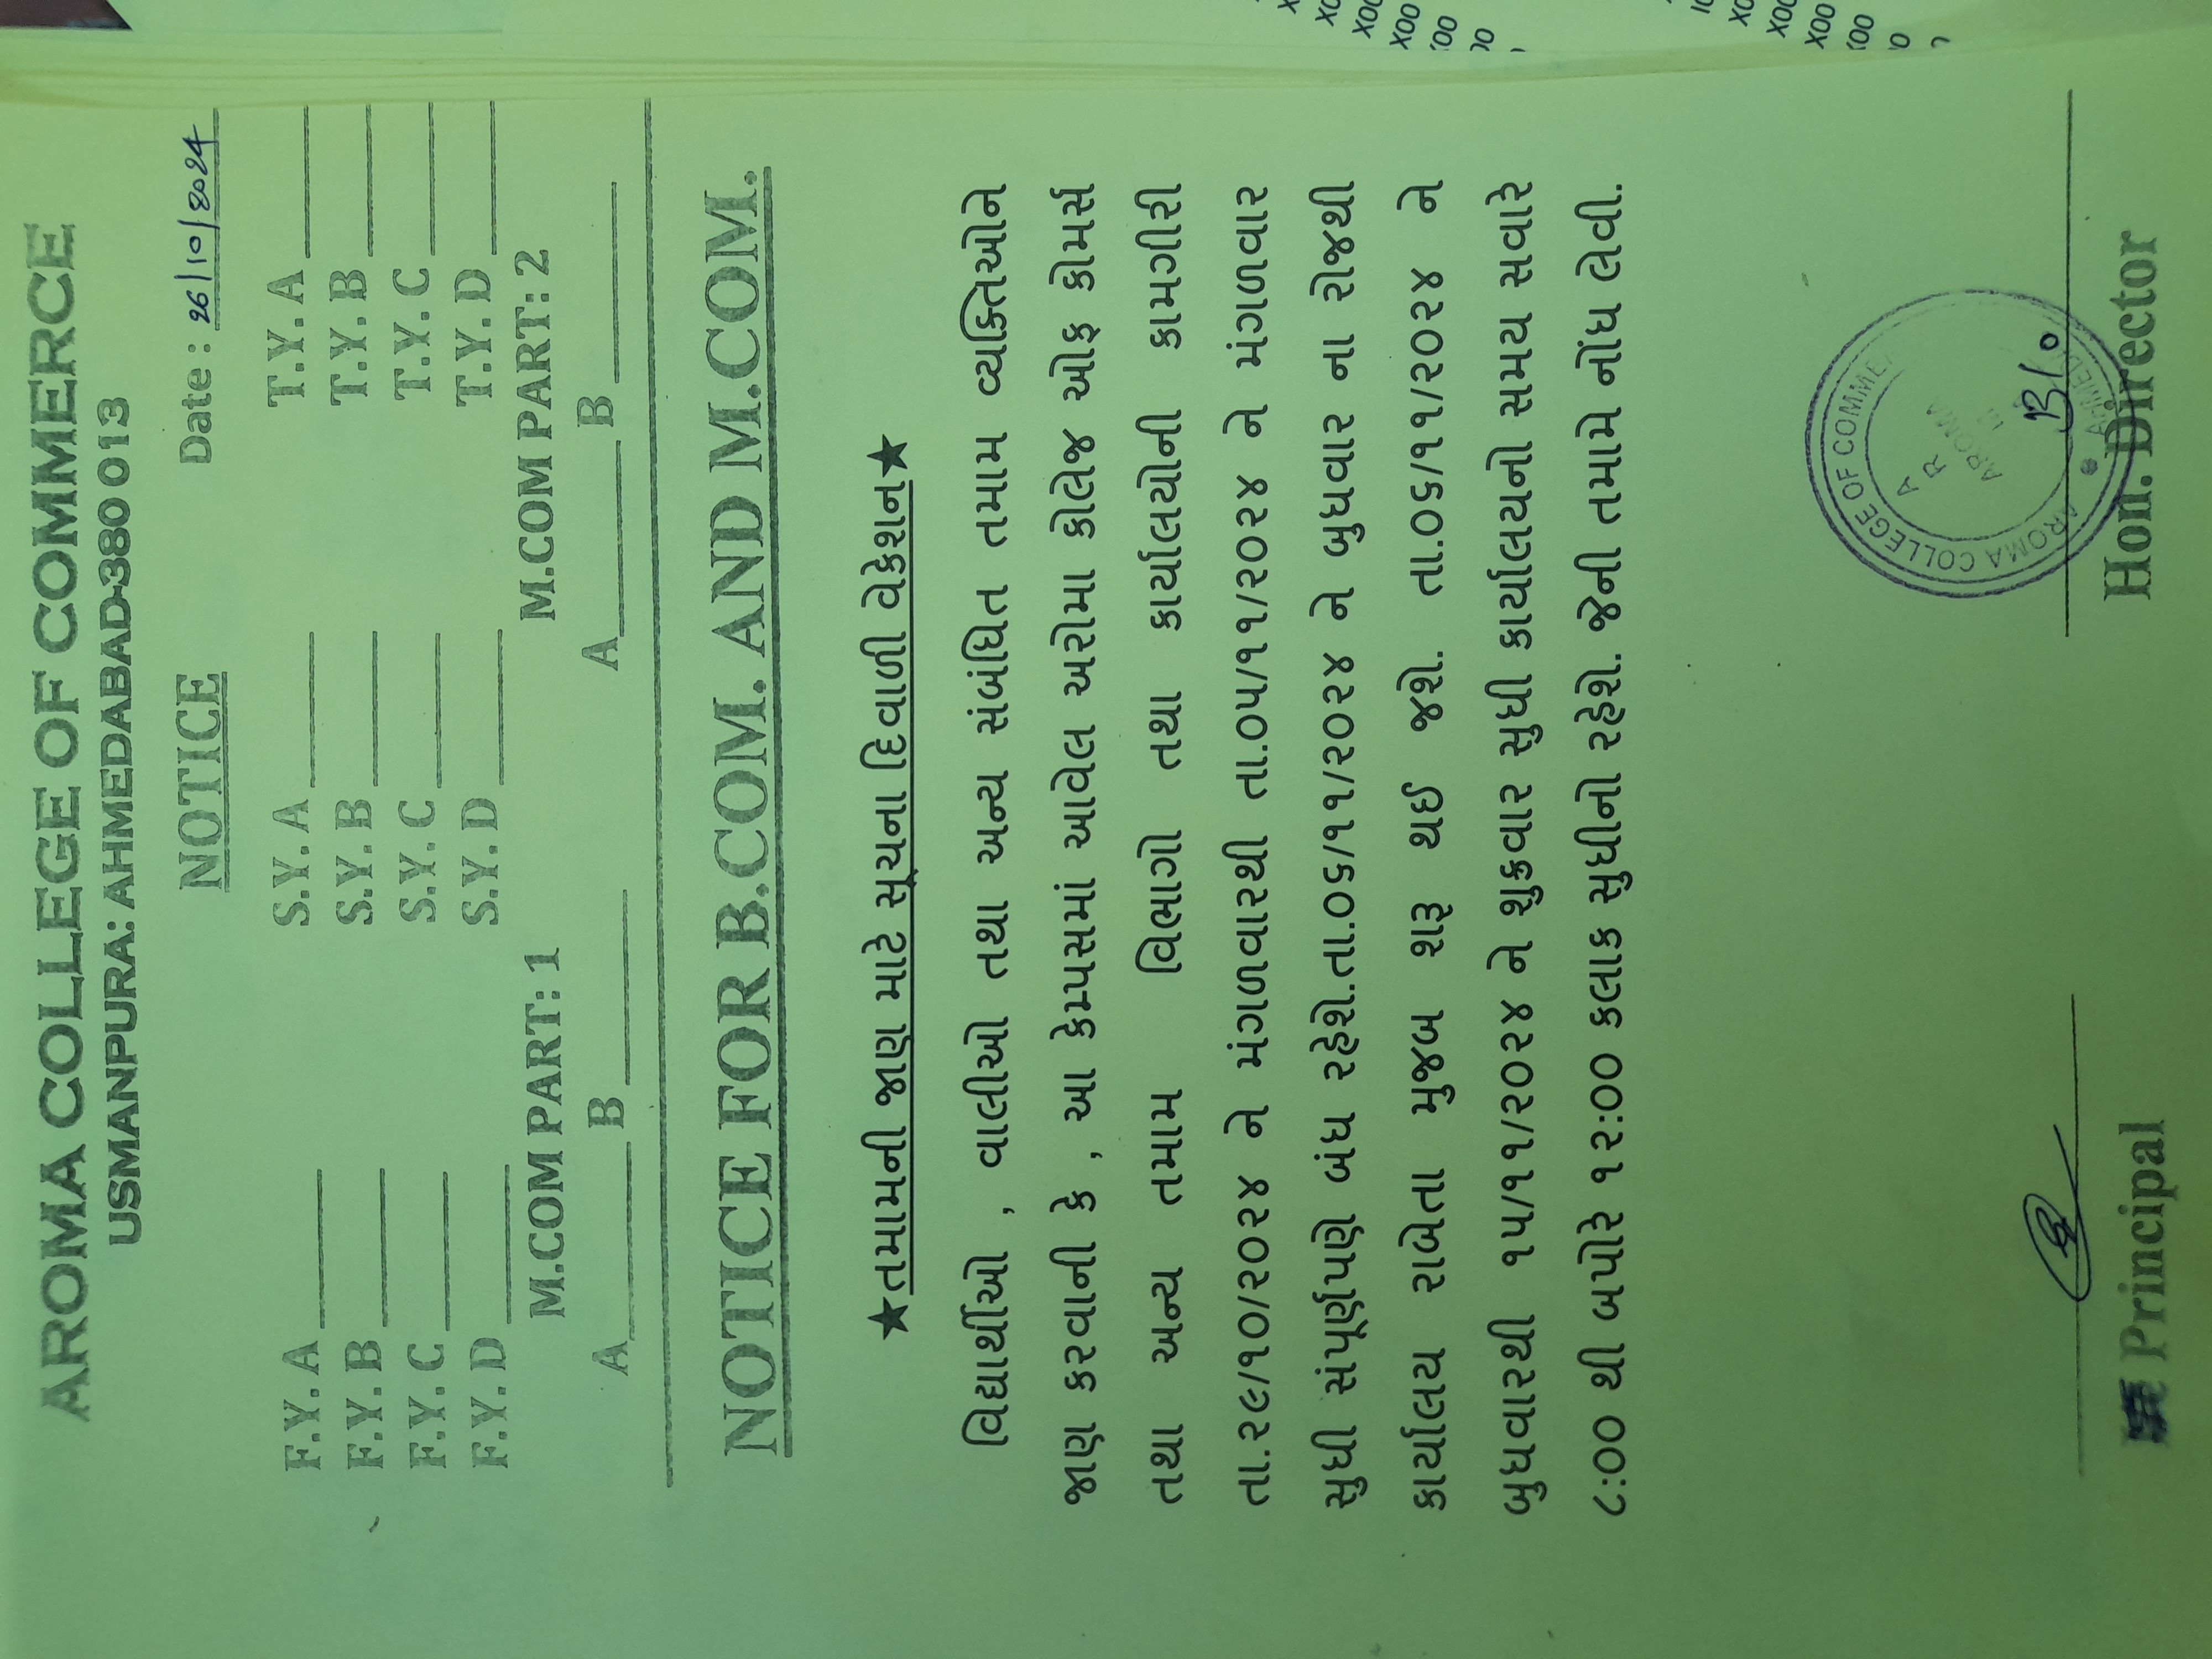 AROMA COLLEGE OF COMMERCE
USMANPURA: AHMEDABAD-380 013
NOTICE Date : 26/10/2024
F.Y. A S.Y. A T.Y. A
F.Y. B S.Y. B T.Y. B
F.Y. C S.Y. C T.Y. C
F.Y. D S.Y. D T.Y. D
M.COM PART: 1 M.COM PART: 2
A B A B
NOTICE FOR B.COM. AND M.COM.
★તમામની જાણ માટે સૂચના દિવાળી વેકેશન★
વિદ્યાર્થીઓ , વાલીઓ તથા અન્ય સંબંધિત તમામ વ્યક્તિઓને
જાણ કરવાની કે , આ કેમ્પસમાં આવેલ અરોમા કોલેજ ઓફ કોમર્સ
તથા અન્ય તમામ વિભાગો તથા કાર્યાલયોની કામગીરી
તા.૨૯/૧૦/૨૦૨૪ ને મંગળવારથી તા.૦૫/૧૧/૨૦૨૪ ને મંગળવાર
સુધી સંપૂર્ણપણે બંધ રહેશે.તા.૦૬/૧૧/૨૦૨૪ ને બુધવાર ના રોજથી
કાર્યાલય રાબેતા મુજબ શરૂ થઈ જશે. તા.૦૬/૧૧/૨૦૨૪ ને
બુધવારથી ૧૫/૧૧/૨૦૨૪ ને શુક્રવાર સુધી કાર્યાલયનો સમય સવારે
૮:૦૦ થી બપોરે ૧૨:૦૦ કલાક સુધીનો રહેશે. જેની તમામે નોંધ લેવી.
AROMA COLLEGE OF COMME
Principal Hon. Director